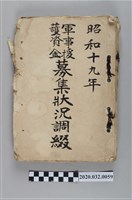 昭和十九年
軍事援護資金
募集狀況調綴
2020.032.0059